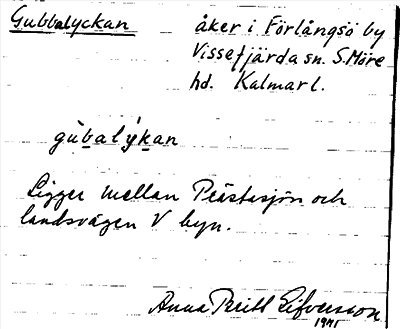 Gubbalyckan
åker i Förlångsö by
Vissefjärda sn. S. Möre
hd. Kalmar l.
gùbalýkan
Ligger mellan Prästasjön och
landsvägen V byn.
Anna Britt Eifversson
1941